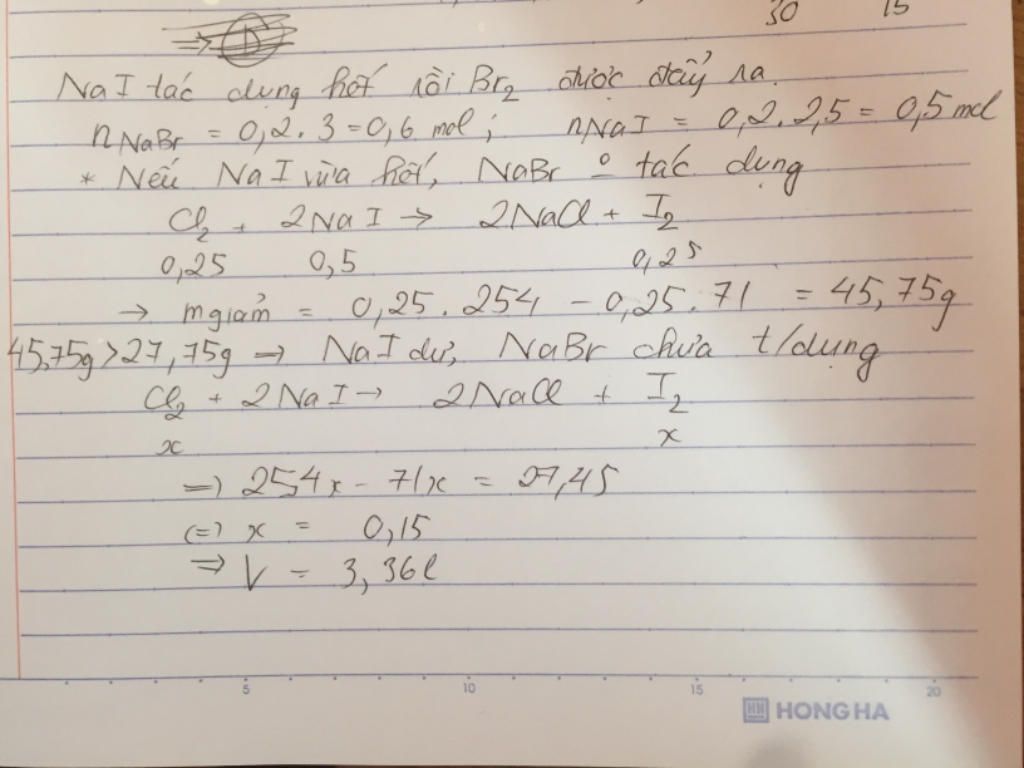 30 15
⇒ D
NaI tác dụng hết rồi Br₂ được đẩy ra.
n NaBr = 0,2 . 3 = 0,6 mol ; nNaI = 0,2 . 2,5 = 0,5 mol
* Nếu NaI vừa hết, NaBr o tác dụng
Cl₂ + 2NaI → 2NaCl + I₂
0,25 0,5 0,25
→ m giảm = 0,25 . 254 - 0,25 . 71 = 45,75g
45,75g > 27,75g ⇒ NaI dư, NaBr chưa t/dụng
Cl₂ + 2NaI → 2NaCl + I₂
x x
⇒ 254x - 71x = 27,45
(=) x = 0,15
⇒ V = 3,36l
5 10 15 20
HH HONG HA